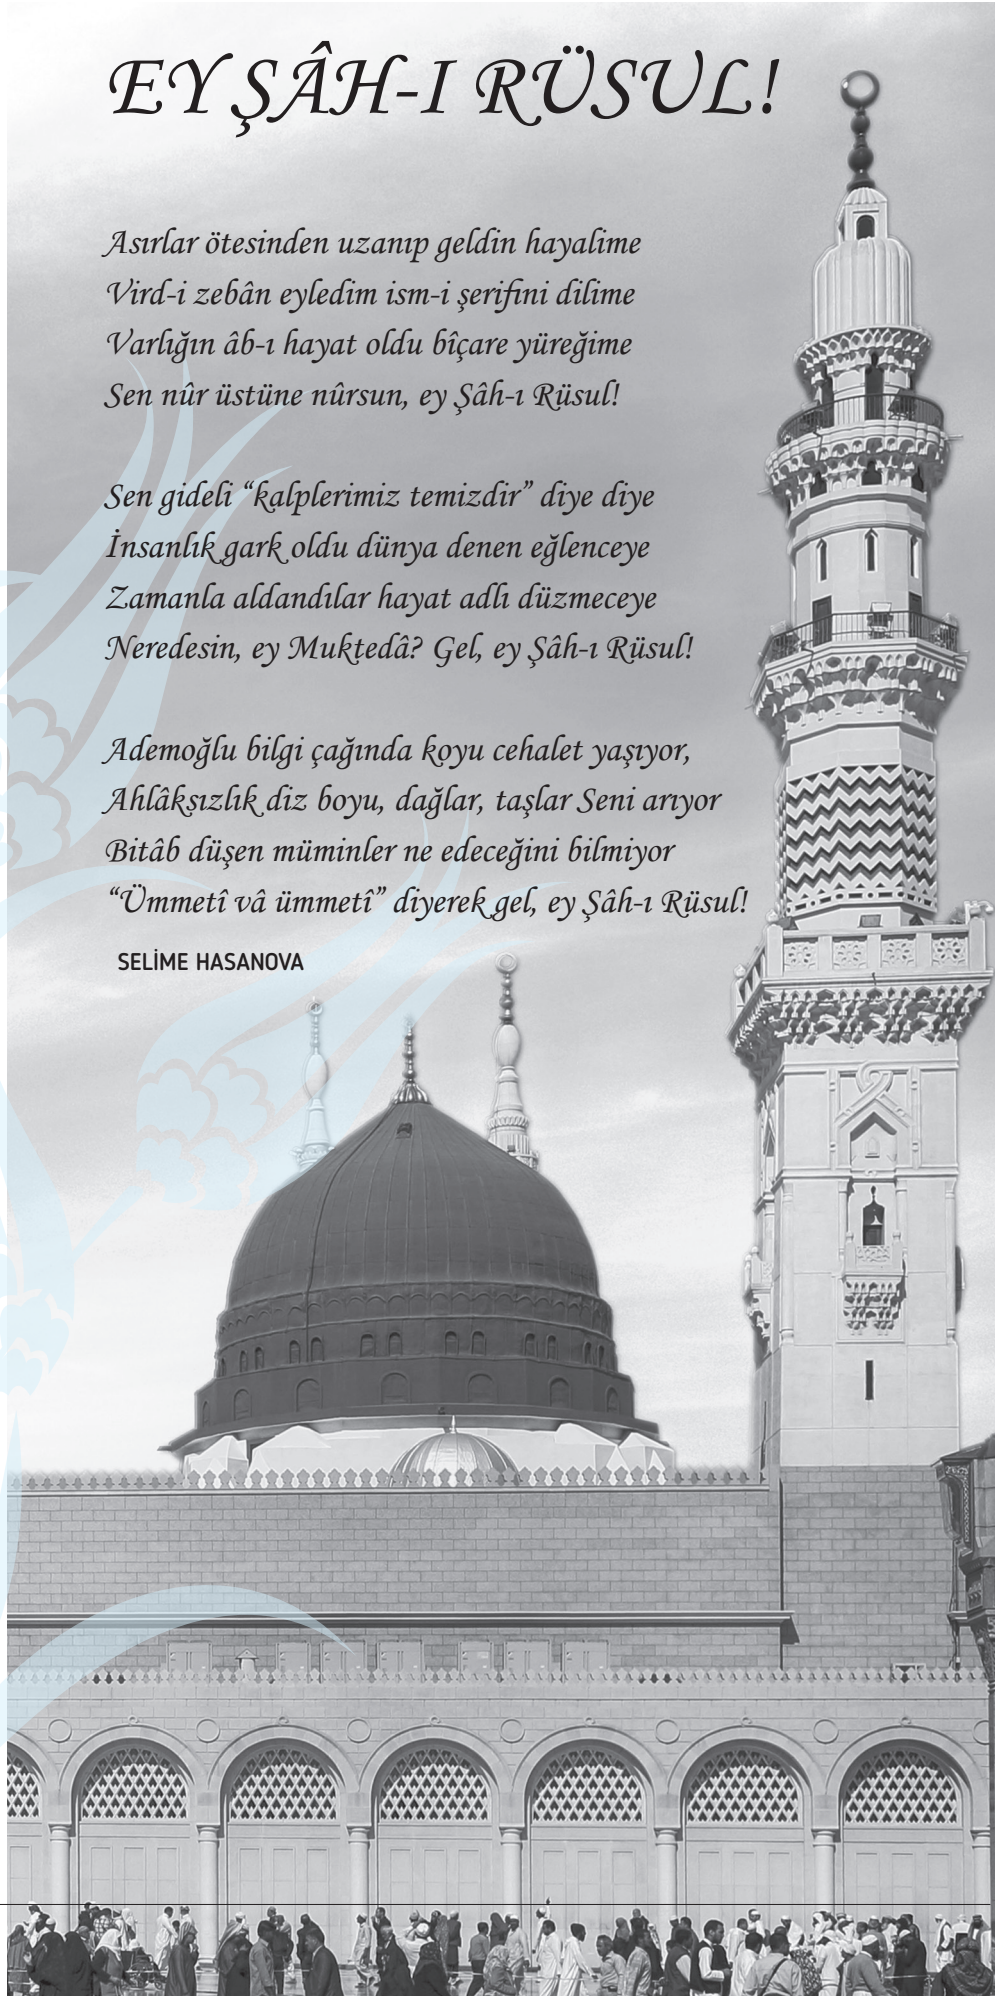 EY ŞÂH-I RÜSUL!
Asırlar ötesinden uzanıp geldin hayalime
Vird-i zebân eyledim ism-i şerifini dilime
Varlığın âb-ı hayat oldu bîçare yüreğime
Sen nûr üstüne nûrsun, ey Şâh-ı Rüsul!
Sen gideli “kalplerimiz temizdir” diye diye
İnsanlık gark oldu dünya denen eğlenceye
Zamanla aldandılar hayat adlı düzmeceye
Neredesin, ey Muktedâ? Gel, ey Şâh-ı Rüsul!
Ademoğlu bilgi çağında koyu cehalet yaşıyor,
Ahlâksızlık diz boyu, dağlar, taşlar Seni arıyor
Bitâb düşen müminler ne edeceğini bilmiyor
“Ümmetî vâ ümmetî” diyerek gel, ey Şâh-ı Rüsul!
SELİME HASANOVA